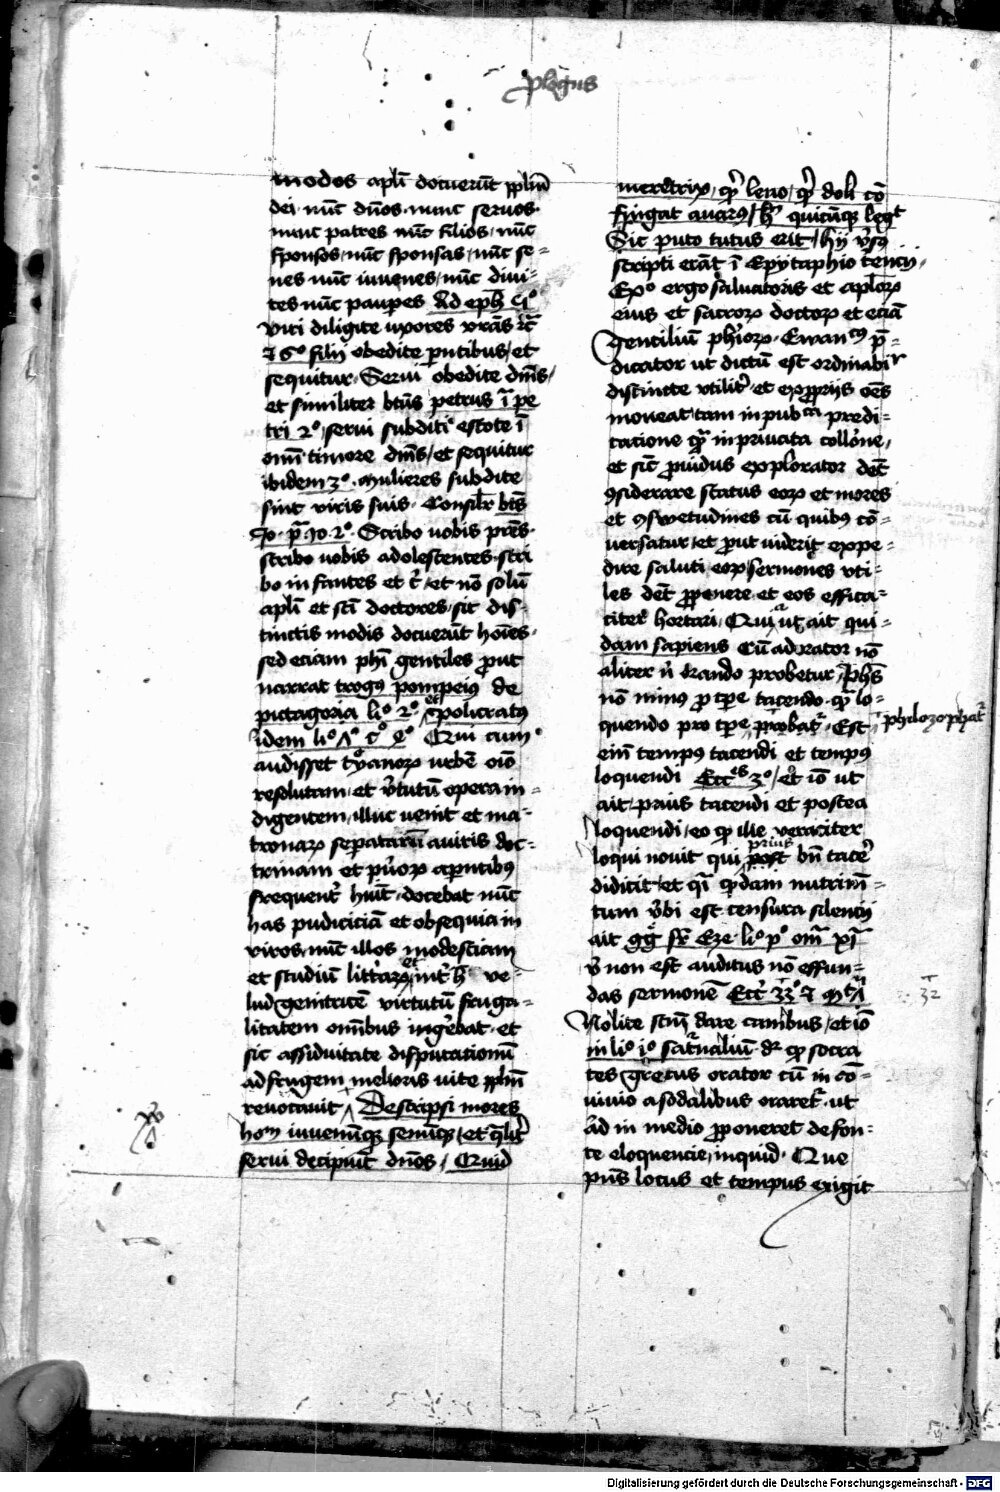 plogus
modos apli docuerūt pplm̄
dei · nūc dn̄os · nunc seruos ·
nunc patres nūc filios / nūc
sponsos / nūc sponsas / nūc se=
nes nūc iuuenes / nūc diui=
tes nūc paupes Ad eph̄ 5°
viri diligite uxores vrās
filij obedite pntibus / et
sequitur · Serui obedite dn̄is /
et similiter bt̄us petrus ī pe
tri 2° / serui subditi estote ī
omī timore dn̄is / et sequitur
ibidem 3° · mulieres subdite
sint viris suis · Consilr bt̄s
Jo · 2° · Scribo uobis prēs ·
scribo uobis adolescentes · scri
bo infantes et c̄ / et nō solū
apli et sc̄i doctores / sic dis=
tinctis modis docuerūt hoīes ·
sed eciam ph̄i gentiles prout
narrat trogꝯ pompeiꝯ de
pictagoria li° 2° · et policratꝯ
idem li° Qui cum
audisset urbē
resolutam · et v̄tutū opera in=
digentem / illuc uenit et ma=
tronaꝝ separatam auiris doc=
trinam et pu̅oꝝ apntibꝯ
frequent̄ huīt · docebat nūc
has pudiciciā et obsequia in
viros / nūc illos modesciam
et studiū litt̄aꝝ et ve=
lud genitricē virtutū fruga=
litatem om̄ibus ing̅ebat · et
sic assiduitate disputationū
ad frugem melioris vite pplm̄
reuocauit / Descripsi mores
hoīm iuuenūqꝫ senūqꝫ / et q̄lit̄
serui decipiūt dn̄os / Quid
meretrix / leno / doli cō
fringat auarꝯ / quicūqꝫ legt
Sic puto tutus erit / hij v̄sꝯ
scripti erāt ī Epytaphio
Exo ergo saluatoris et aploꝝ
eius et sacroꝝ doctoꝝ et eciā
gentiliū ph̄ioꝝ · Ewancꝯ p̄=
dicator ut dictū est ordinabir
distincte vtilit̄ · et expprijs oēs
moueat · tam in pubca predi=
catione q̄ in priuata collōne /
et sic prouidus explorator det̄
ꝯsiderare status eoꝝ et mores
et ꝯswetudines cū quibꝯ cō=
uersatur / et prout uiderit expe=
dire saluti eoꝝ sermones vti=
les det̄ proponere · et eos effica=
citer hortari · Quia ut ait qui=
dam sapiens Cū ad orator nō
aliter n̄ orando probetur / ph̄s
nō minꝯ pro tpe tacendo · q̄ lo=
quendo pro tpe probatr · Est
philozophatr
eim̄ tempꝯ tacendi et tempꝯ
loquendi Ecces 3° / et iō ut
ait prius tacendi et postea
loquendi / eo qp ille veraciter
loqui nouit qui prius post bn̄ tacē
didicit · et q̄ qp̄dam nutrim̄=
tum v̄bi est censura silencij
ait gg̅ Eze · li° p° om̄ xi
v̄ non est auditus nō effun=
das sermonē Ecc̄
32
Nolite scm̄ dare canibus / et iō
in li° i° saturnaliū · dr qp socra
tes grecus orator cū in cō=
uiuio a sodalibus oraretr · ut
ad in medio proponeret de fon=
te eloquencie / inquid · Que
pn̄s locus et tempus exigit
Digitalisierung gefördert durch die Deutsche Forschungsgemeinschaft - DFG